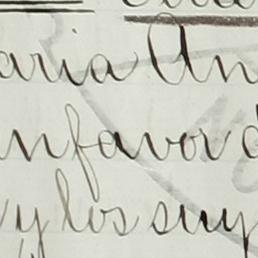 aria An
en favor d
y los suy